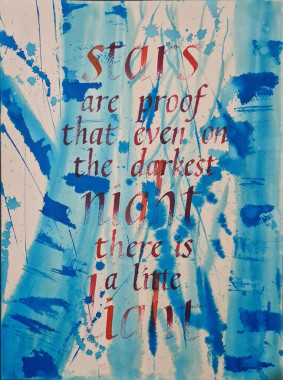 stars
are proof
that even on
the darkest
night
there is
a little
light